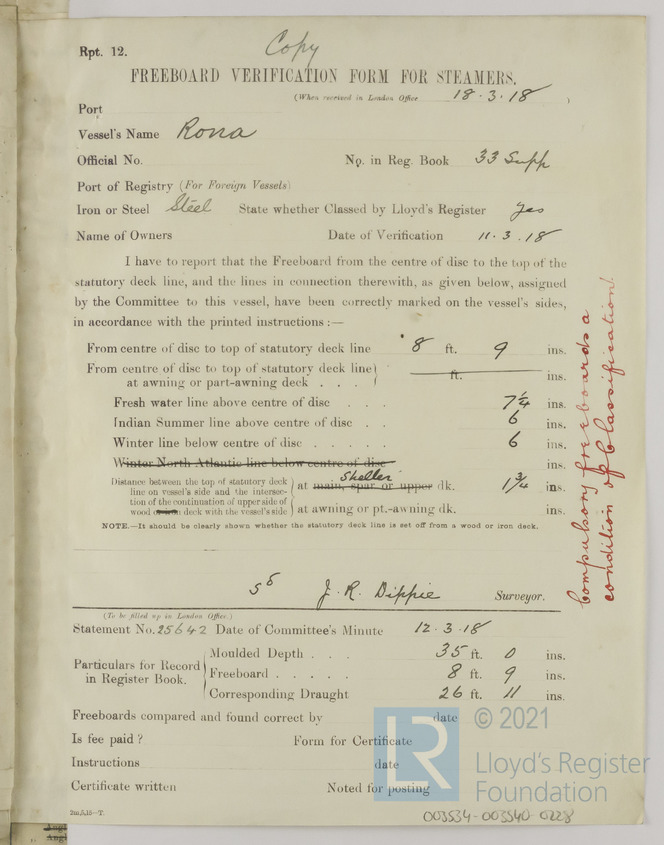 Rpt. 12.
Copy
FREEBOARD VERIFICATION FORM FOR STEAMERS.
(When received in London Office 18.3.18 )
Port
Vessel's Name Rona
Official No. No. in Reg. Book 33 Supp
Port of Registry (For Foreign Vessels)
Iron or Steel Steel State whether Classed by Lloyd's Register Yes
Name of Owners Date of Verification 11.3.18
I have to report that the Freeboard from the centre of disc to the top of the
statutory deck line, and the lines in connection therewith, as given below, assigned
by the Committee to this vessel, have been correctly marked on the vessel's sides,
in accordance with the printed instructions :—
From centre of disc to top of statutory deck line 8 ft. 9 ins.
From centre of disc to top of statutory deck line
at awning or part-awning deck . . . ft. ins.
Fresh water line above centre of disc . . . 7 1/4 ins.
Indian Summer line above centre of disc . . 6 ins.
Winter line below centre of disc . . . . . 6 ins.
Winter North Atlantic line below centre of disc ins.
Distance between the top of statutory deck
line on vessel's side and the intersec-
tion of the continuation of upper side of
wood deck with the vessel's side
Shelter
at main, spar or upper dk. 1 3/4 ins.
at awning or pt.-awning dk. ins.
NOTE.—It should be clearly shown whether the statutory deck line is set off from a wood or iron deck.
Compulsory freeboards a
condition of Classification.
J. R. Dippie Surveyor.
(To be filled up in London Office.)
Statement No. 25642 Date of Committee's Minute 12.3.18
Particulars for Record
in Register Book.
Moulded Depth . . . 35 ft. 0 ins.
Freeboard . . . . . 8 ft. 9 ins.
Corresponding Draught 26 ft. 11 ins.
Freeboards compared and found correct by date
Is fee paid ? Form for Certificate
Instructions date
Certificate written Noted for posting
LR
© 2021
Lloyd's Register
Foundation
003534-003540-0228